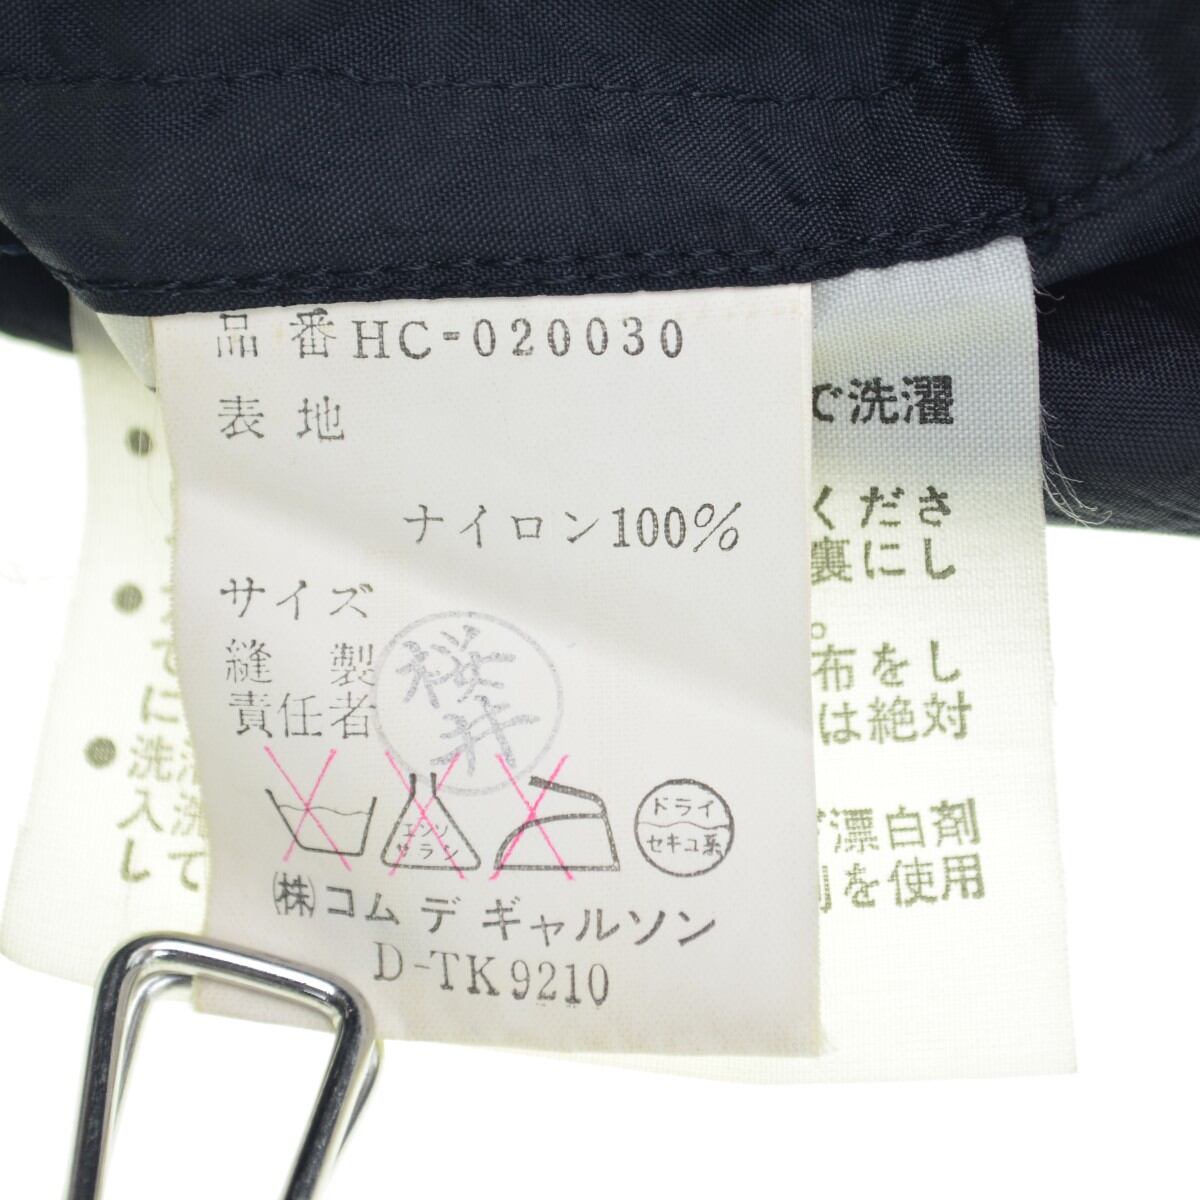 品番 HC-020030
表地
ナイロン100%
サイズ
縫製
責任者
桜井
エンソ
サラシ
ドライ
セキユ系
(株)コム デ ギャルソン
D-TK9210
で洗濯
くださ
裏にし
。
布をし
は絶対
漂白剤
を使用
● 洗濯
入洗
して